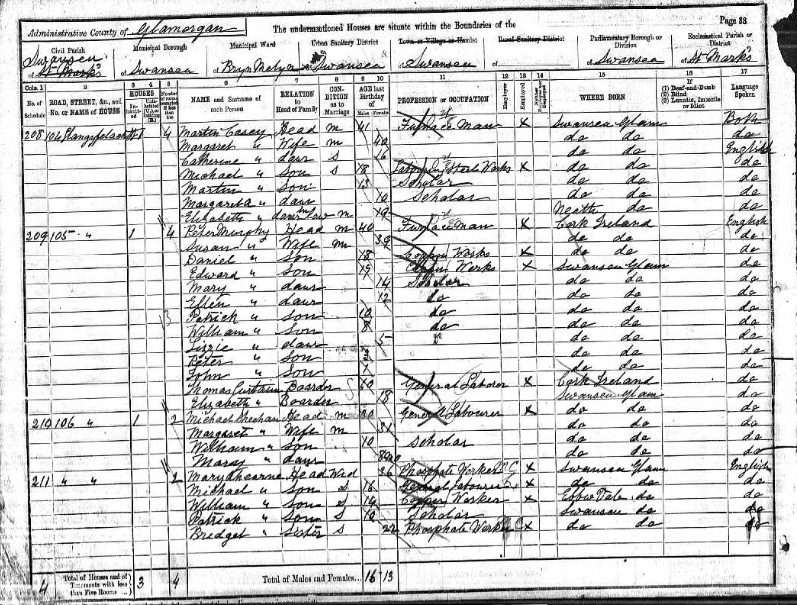 Administrative County of Glamorgan
The undermentioned Houses are situate within the Boundaries of the
Page 33
Civil Parish
Municipal Borough
Municipal Ward
Urban Sanitary District
Town or Village or Hamlet
Rural Sanitary District
Parliamentary Borough or Division
Ecclesiastical Parish or District
Swansea St Marks of Swansea of Swansea of Swansea of Swansea of St Marks
Cols. 1 2 3 4 5 6 7 8 9 10 11 12 13 14 15 16 17
No. of Schedule
ROAD, STREET, &c., and No. or NAME of HOUSE
HOUSES
NAME and Surname of each Person
RELATION to Head of Family
CONDITION as to Marriage
AGE last Birthday of
Males Females
PROFESSION or OCCUPATION
Employer
Employed
WHERE BORN
(1) Deaf-and-Dumb
(2) Blind
(3) Lunatic, Imbecile or Idiot
Language Spoken
208 104 1 4 Martin Casey Head M 41 Furnace Man X Swansea Glam Both
Margaret " Wife M 40 do do do
Catherine " daur S 16 do do English
Michael " Son S 18 Steele Works X do do do
Martin " Son 13 Scholar do do do
Margaret " daur 10 Scholar do do do
Elizabeth " daur in Law M 19 Neath do do
209 105 " 1 4 Peter Murphy Head M 40 Furnace Man X Cork Ireland English
Susan " Wife M 39 do do do
Daniel " Son 18 Copper Works X do do do
Edward " Son 19 Copper Works X Swansea Glam do
Mary " daur 14 Scholar do do do
Ellen " daur 12 do do do do
Patrick " Son 10 do do do do
William " Son 8 do do do do
Lizzie " daur 5 do do do
Peter " Son do do do
John " Son 1 do do do
Thomas Boarder 60 General Laborer X Cork Ireland do
Elizabeth " Boarder 18 Swansea Glam do
210 106 " 1 2 Michael Head M 30 General Labourer X do do do
Margaret " Wife M 31 do do do
William " Son 10 Scholar do do do
Mary " daur do do do
211 " " 2 Mary Head Wid 36 Phosphate Worker X Swansea Glam English
Michael " Son S 16 General Labourer X do do do
William " Son S 14 Copper Worker X Ebbw Vale do do
Patrick " Son S 10 Scholar Swansea do do
Bridget " Sister S 22 Phosphate Works X do do do
4 Total of Houses and of Tenements with less than Five Rooms 3 4 Total of Males and Females... 16 13